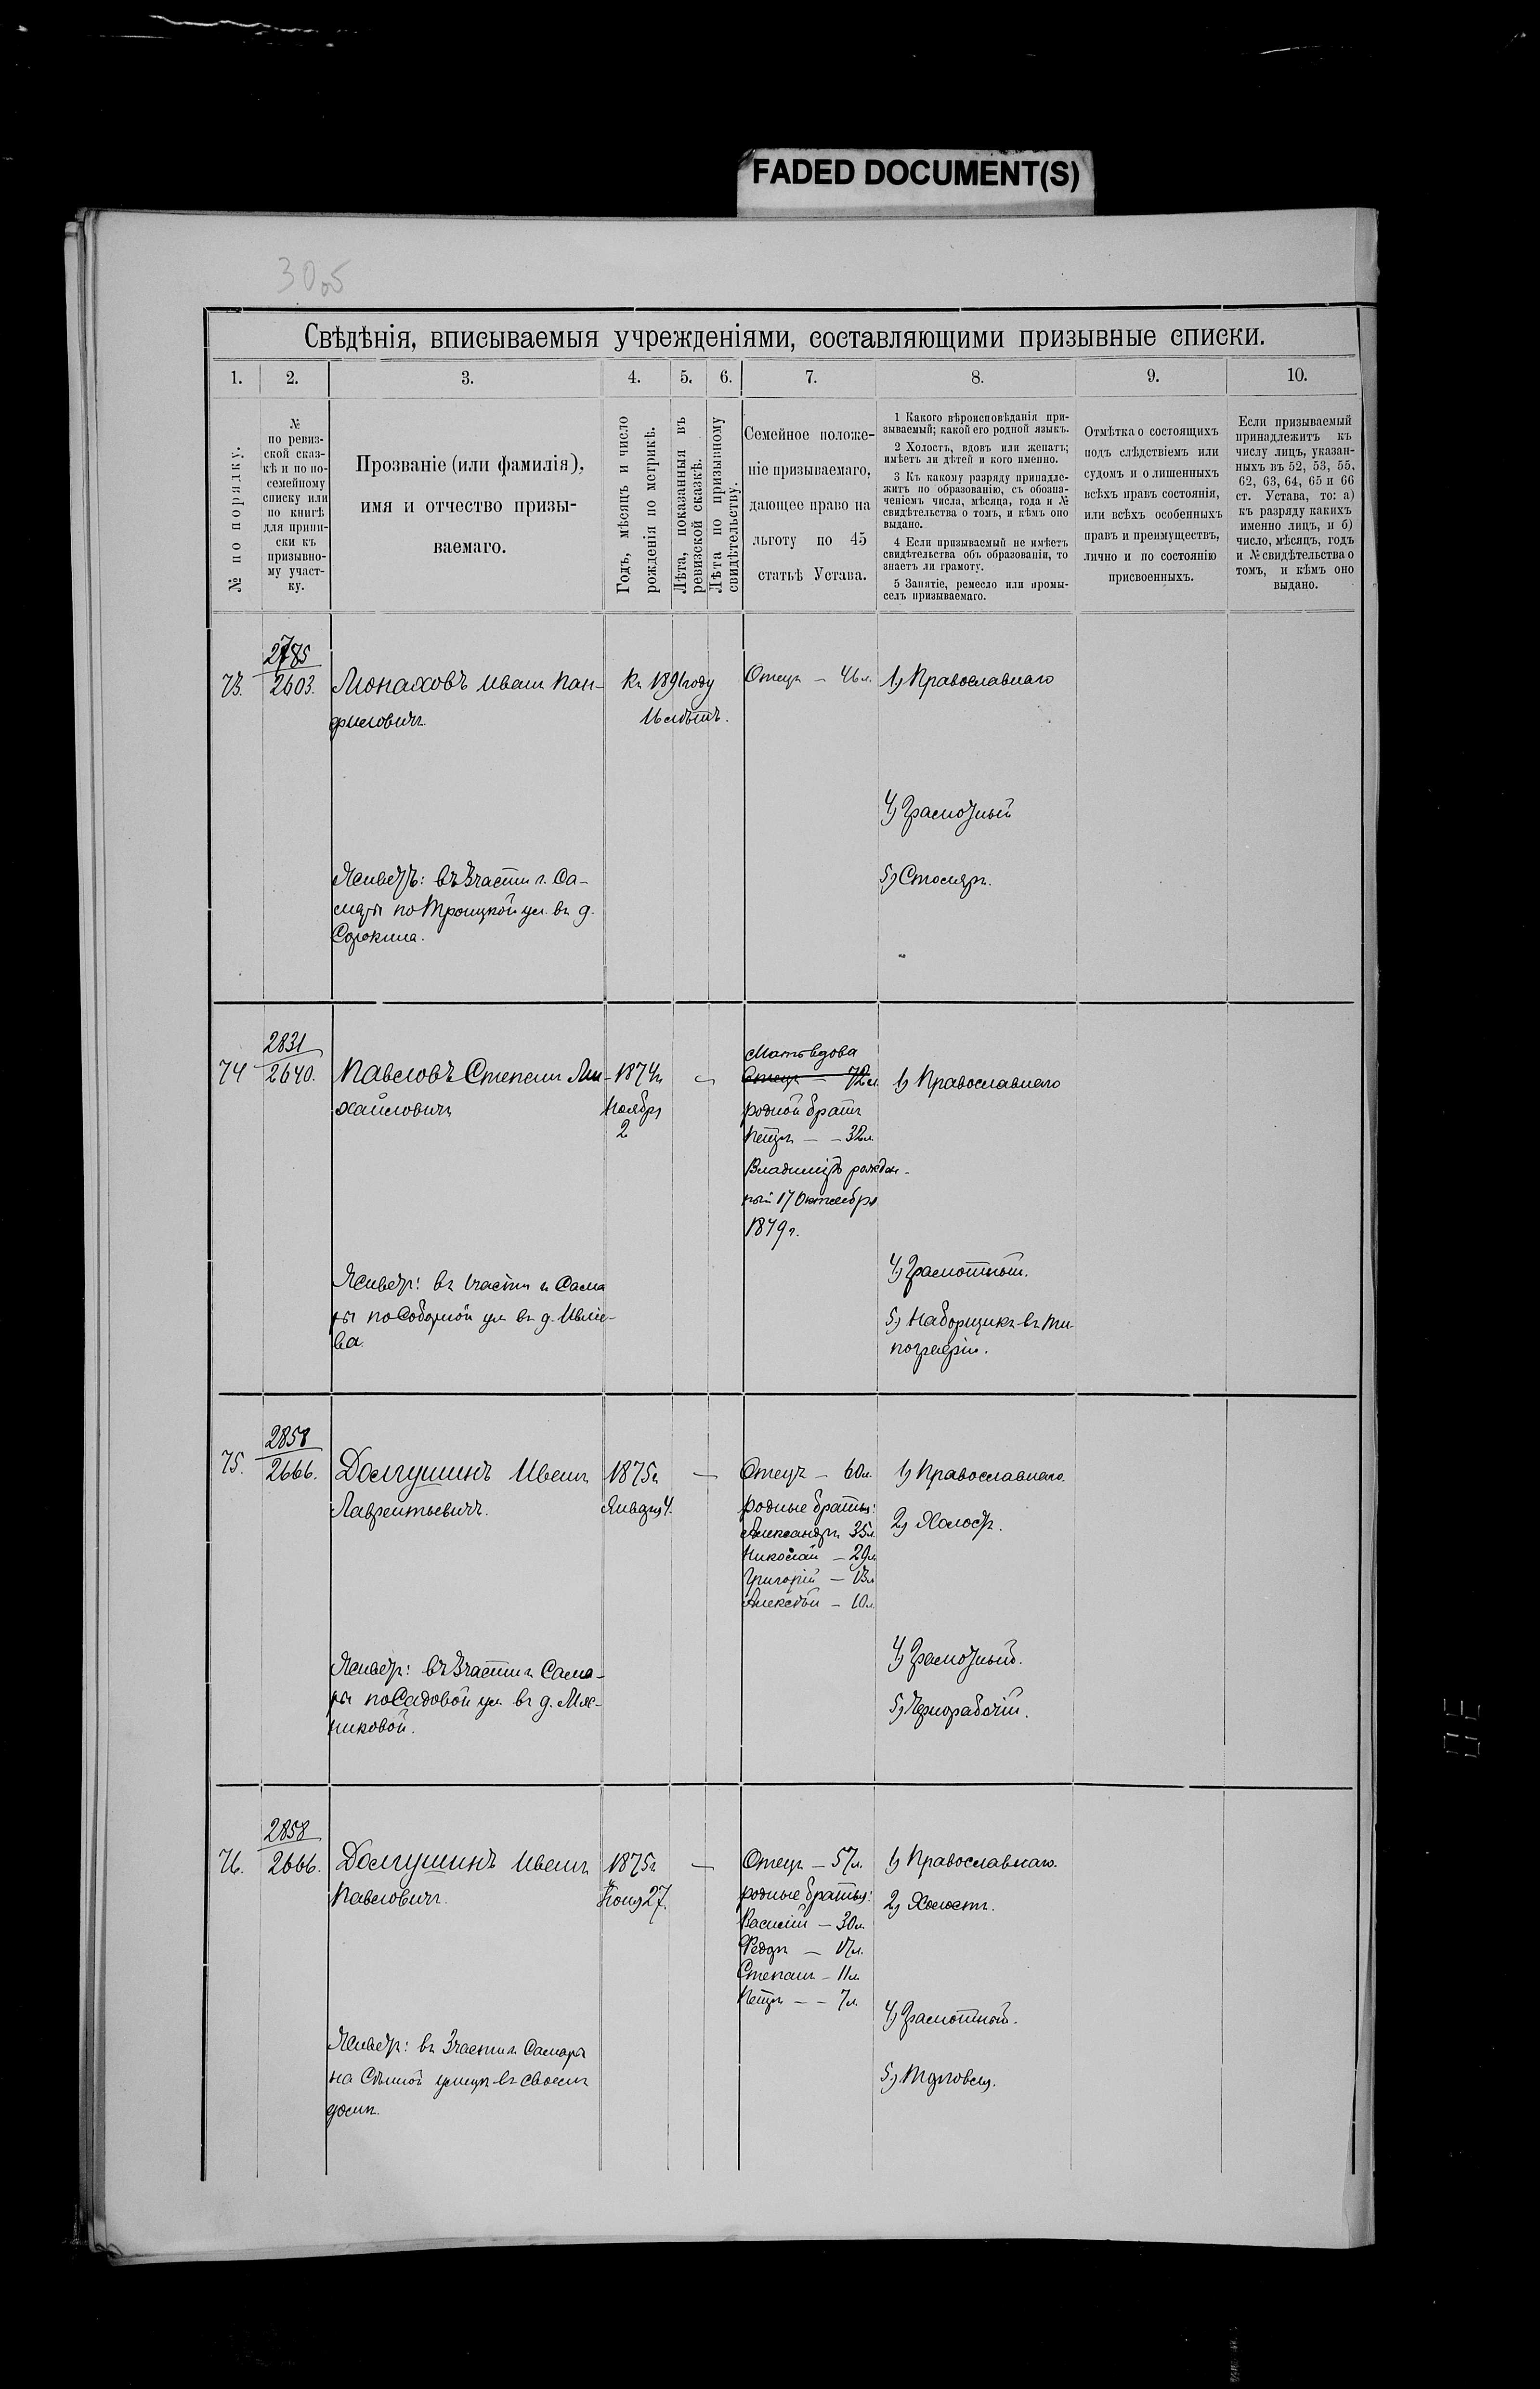 FADED DOCUMENT(S)
30об
Свѣдѣнія, вписываемыя учрежденіями, составляющими призывные списки.
1.
2.
3.
4.
5.
6.
7.
8.
9.
10.
№ по порядку.
№
по ревиз-
ской сказ-
кѣ и по по-
семейному
списку или
по книгѣ
для припи-
ски къ
призывно-
му участ-
ку.
Прозваніе (или фамилія),
имя и отчество призы-
ваемаго.
Годъ, мѣсяцъ и число
рожденія по метрикѣ.
Лѣта, показанныя въ
ревизской сказкѣ.
Лѣта по призывному
свидѣтельству.
Семейное положе-
ніе призываемаго,
дающее право на
льготу по 45
статьѣ Устава.
1 Какого вѣроисповѣданія при-
зываемый; какой его родной языкъ.
2 Холостъ, вдовъ или женатъ;
имѣетъ ли дѣтей и кого именно.
3 Къ какому разряду принадле-
житъ по образованію, съ обозна-
ченіемъ числа, мѣсяца, года и №
свидѣтельства о томъ, и кѣмъ оно
выдано.
4 Если призываемый не имѣетъ
свидѣтельства объ образованіи, то
знаетъ ли грамоту.
5 Занятіе, ремесло или промы-
селъ призываемаго.
Отмѣтка о состоящихъ
подъ слѣдствіемъ или
судомъ и о лишенныхъ
всѣхъ правъ состоянія,
или всѣхъ особенныхъ
правъ и преимуществъ,
лично и по состоянію
присвоенныхъ.
Если призываемый
принадлежитъ къ
числу лицъ, указан-
ныхъ въ 52, 53, 55,
62, 63, 64, 65 и 66
ст. Устава, то: а)
къ разряду какихъ
именно лицъ, и б)
число, мѣсяцъ, годъ
и № свидѣтельства о
томъ, и кѣмъ оно
выдано.
73.
2785
2603.
Монаховъ Иванъ Пан-
филовичъ.
Къ 1891 году
16 лѣтъ.
Отецъ – 46 л.
1) Православнаго
4) Грамотный
5) Столяръ.
Живетъ: въ 3 части г. Са-
мары по Троицкой ул. въ д.
Сорокина.
74
2831
2640.
Павловъ Степанъ Ми-
хайловичъ
1874 г.
Ноября
2
Мать вдова
Отецъ – 72 л.
родной братъ
Петръ – – 32 л.
Владиміръ рожден-
ный 17 Октября
1879 г.
1) Православнаго
4) Грамотный.
5) Наборщикъ въ ти-
пографіи.
Живетъ: въ 1 части г. Сама
ры по Соборной ул. въ д. Ивлие-
ва.
75.
2858
2666.
Долгушинъ Иванъ
Лаврентьевичъ.
1875 г.
Января 4.
—
Отецъ – 60 л.
родные братья:
Александръ 35 л.
Николай – 29 л.
Григорій – 13 л.
Алексѣй – 10 л.
1) Православнаго.
2) Холостъ.
4) Грамотный.
5) Чернорабочій.
Живетъ: въ 3 части г. Сама-
ры по Садовой ул. въ д. Мяс-
никовой.
76.
2858
2666.
Долгушинъ Иванъ
Павловичъ.
1875 г.
Іюня 27.
—
Отецъ – 57 л.
родные братья:
Василій – 30 л.
Ѳедоръ – 17 л.
Степанъ – 11 л.
Петръ – – 7 л.
1) Православнаго.
2) Холостъ.
4) Грамотный.
5) Торговля.
Живетъ: въ 3 части г. Самары
на Сѣнной улицѣ въ своемъ
домѣ.